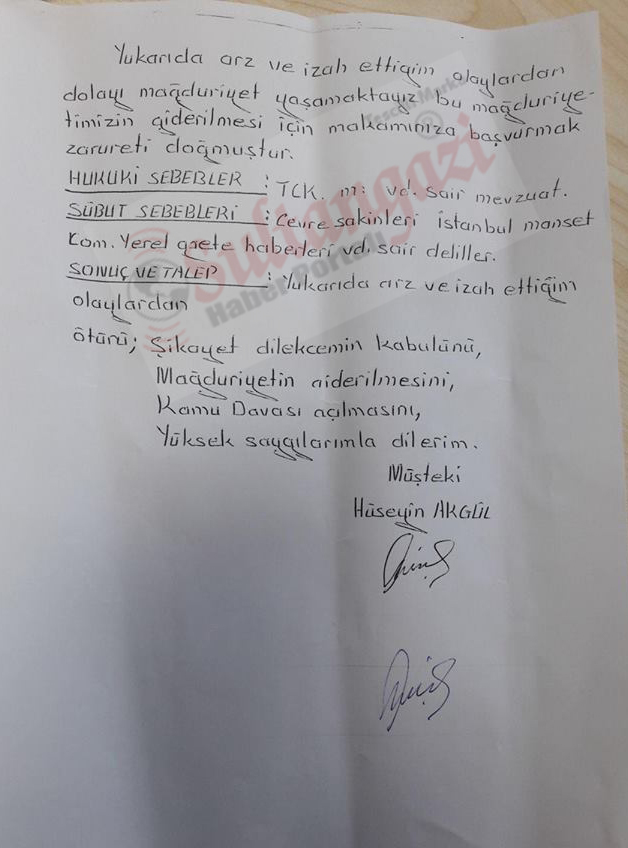 Yukarıda arz ve izah ettiğim olaylardan
dolayı mağduriyet yaşamaktayız bu mağduriye-
timizin giderilmesi için makamınıza başvurmak
zarureti doğmuştur.
HUKUKİ SEBEBLER : TCK. m: vd. sair mevzuat.
SÜBUT SEBEBLERİ : Çevre sakinleri İstanbul manset
kom. Yerel gaete haberleri vd. sair deliller.
SONUÇ VE TALEP : Yukarıda arz ve izah ettiğim
olaylardan
ötürü; Şikayet dilekcemin kabulünü,
Mağduriyetin giderilmesini,
Kamu Davası açılmasını,
Yüksek saygılarımla dilerim.
Müşteki
Hüseyin AKGÜL
Sultangazi
Haber Portalı
Tescilli Marka
®